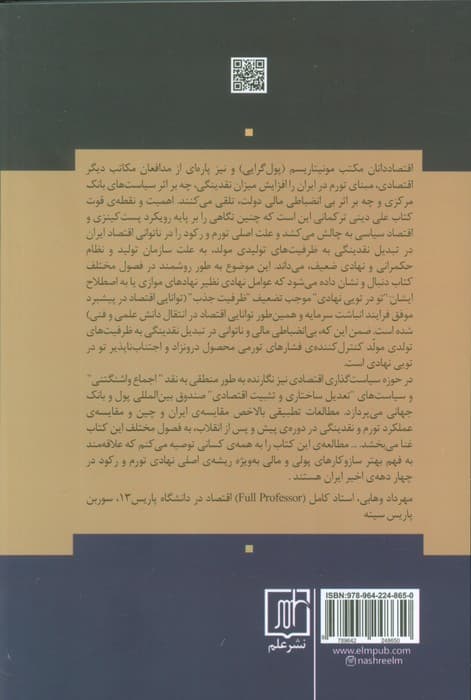 اقتصاددانان مکتب مونیتاریسم (پول‌گرایی) و نیز پاره‌ای از مدافعان مکاتب دیگر
اقتصادی، مبنای تورم در ایران را افزایش میزان نقدینگی، چه بر اثر سیاست‌های بانک
مرکزی و چه بر اثر بی انضباطی مالی دولت، تلقی می‌کنند. اهمیت و نقطه‌ی قوت
کتاب علی دینی ترکمانی این است که چنین نگاهی را بر پایه رویکرد پست‌کینزی و
اقتصاد سیاسی به چالش می‌کشد و علت اصلی تورم و رکود را در ناتوانی اقتصاد ایران
در تبدیل نقدینگی به ظرفیت‌های تولیدی مولد، به علت سازمان تولید و نظام
حکمرانی و نهادی ضعیف، می‌داند. این موضوع به طور روشمند در فصول مختلف
کتاب دنبال و نشان داده می‌شود که عوامل نهادی نظیر نهادهای موازی یا به اصطلاح
ایشان "تو در تویی نهادی" موجب تضعیف "ظرفیت جذب" (توانایی اقتصاد در پیشبرد
موفق فرآیند انباشت سرمایه و همین‌طور توانایی اقتصاد در انتقال دانش علمی و فنی)
شده است. ضمن این که، بی‌انضباطی مالی و ناتوانی در تبدیل نقدینگی به ظرفیت‌های
تولدی مولّد کنترل‌کننده‌ی فشارهای تورمی محصول درونزاد و اجتناب‌ناپذیر تو در
تویی نهادی است.
در حوزه سیاست‌گذاری اقتصادی نیز نگارنده به طور منطقی به نقد "اجماع واشنگتنی"
و سیاست‌های "تعدیل ساختاری و تثبیت اقتصادی" صندوق بین‌المللی پول و بانک
جهانی می‌پردازد. مطالعات تطبیقی بالاخص مقایسه‌ی ایران و چین و مقایسه‌ی
عملکرد تورم و نقدینگی در دوره‌ی پیش و پس از انقلاب، به فصول مختلف این کتاب
غنا می‌بخشد. ... مطالعه‌ی این کتاب را به همه‌ی کسانی توصیه می‌کنم که علاقه‌مند
به فهم بهتر سازوکارهای پولی و مالی به‌ویژه ریشه‌ی اصلی نهادی تورم و رکود در
چهار دهه‌ی اخیر ایران هستند.
مهرداد وهابی، استاد کامل (Full Professor) اقتصاد در دانشگاه پاریس ۱۳، سوربن
پاریس سیته
نشر علم
ISBN: 978-964-224-865-0
9 789642 248650
www.elmpub.com
nashreelm